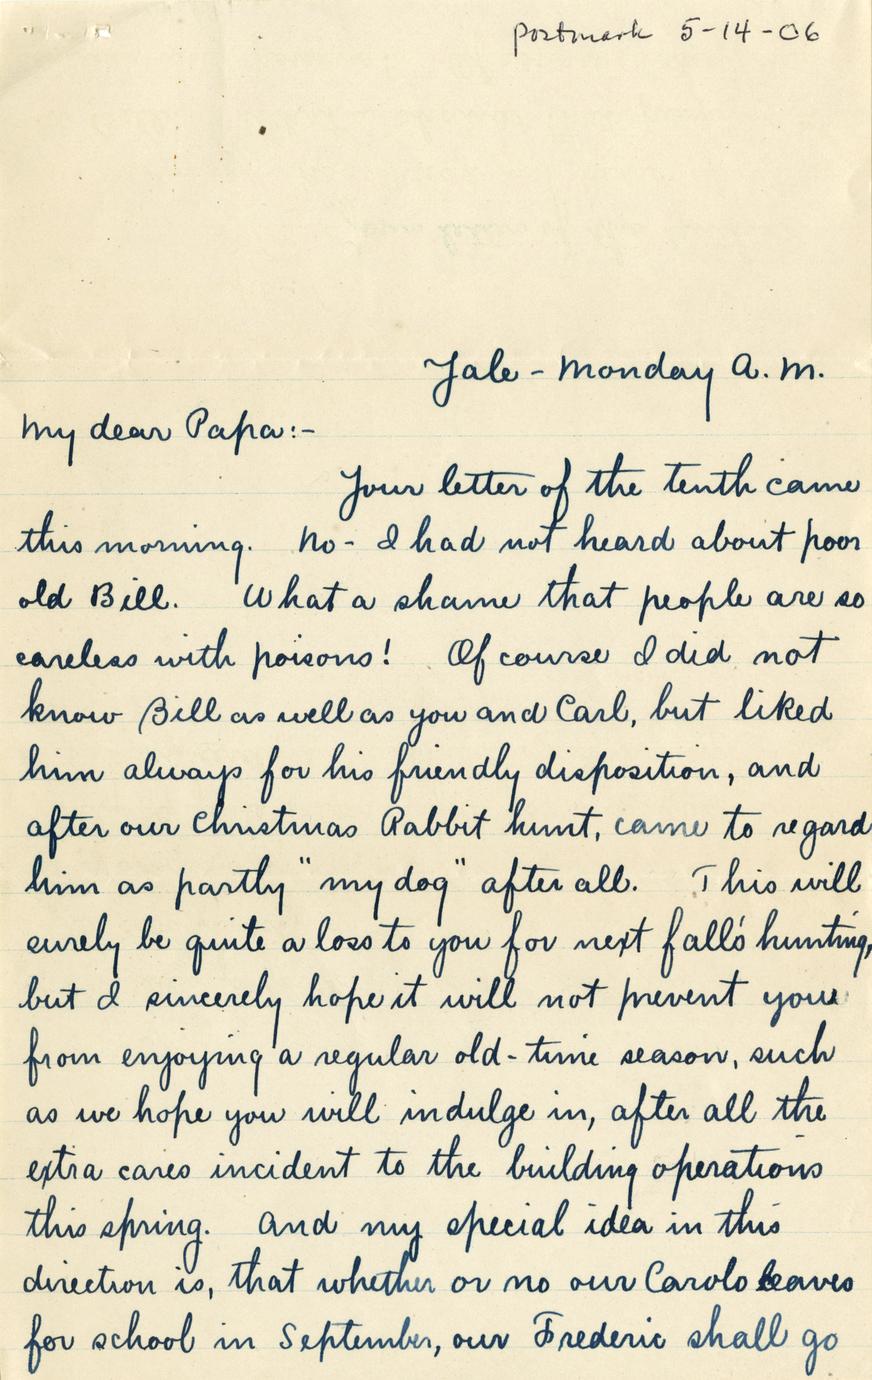 postmark 5-14-06
Yale - Monday A.M.
My dear Papa:-
Your letter of the tenth came
this morning. No - I had not heard about poor
old Bill. What a shame that people are so
careless with poisons! Of course I did not
know Bill as well as you and Carl, but liked
him always for his friendly disposition, and
after our Christmas Rabbit hunt, came to regard
him as partly "my dog" after all. This will
surely be quite a loss to you for next fall's hunting,
but I sincerely hope it will not prevent your
from enjoying a regular old-time season, such
as we hope you will indulge in, after all the
extra cares incident to the building operations
this spring. And my special idea in this
direction is, that whether or no our Carolo leaves
for school in September, our Frederic shall go